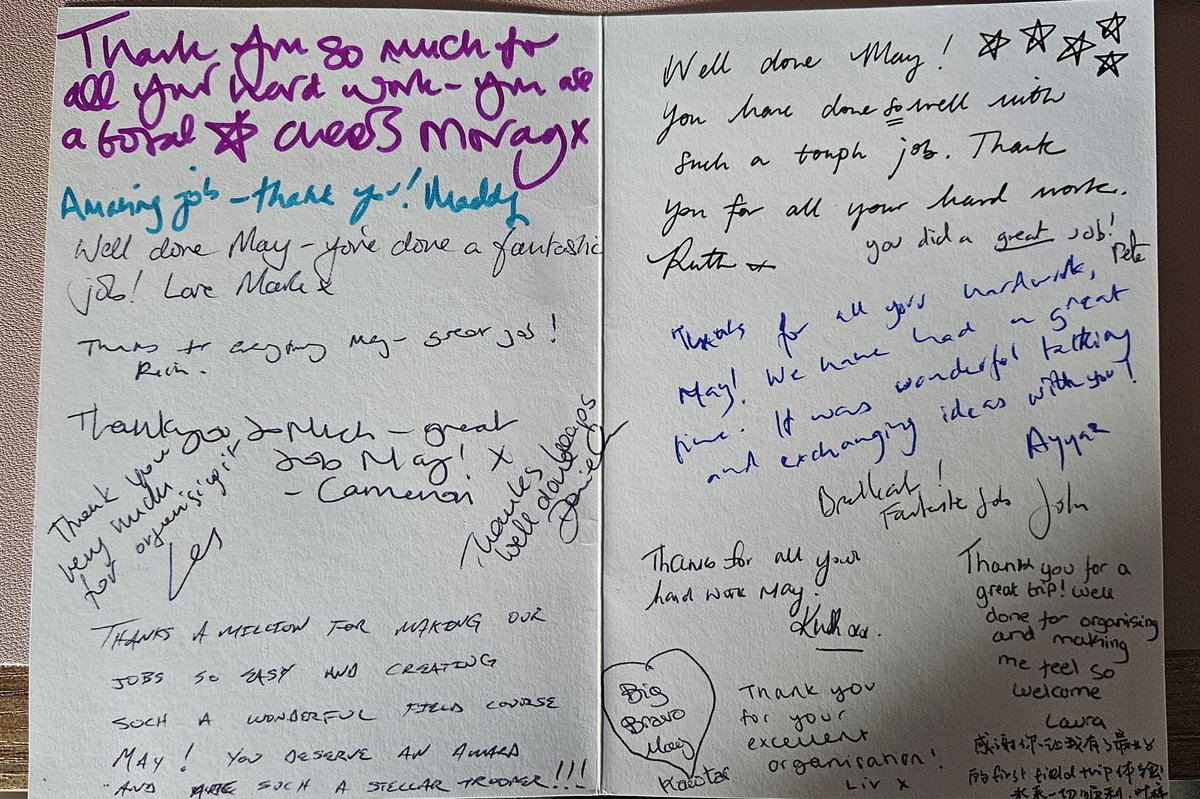 Thank you so much for
all your hard work – you are
a total ☆ cheers Morag x
Amazing job – thank you! Maddy
Well done May – you've done a fantastic
job! Love Mark x
Thanks for everything May – great job!
Thank you so Much – great
Job May! x
– Cameron
Thank you
very much
for organising it
Les
Thanks heaps
Well done
THANKS A MILLION FOR MAKING OUR
JOBS SO EASY AND CREATING
SUCH A WONDERFUL FIELD COURSE
MAY! YOU DESERVE AN AWARD
AND SUCH A STELLAR TROOPER!!!
Well done May! ☆☆☆☆☆
You have done so well with
such a tough job. Thank
you for all your hard work.
Ruth x
you did a great job!
Pete
Thanks for all your hardwork,
May! We have had a great
time. It was wonderful talking
and exchanging ideas with you!
Ayyaz
Brilliant!
Fantastic job John
Thanks for all your
hard work May.
Big
Bravo
May
Thank you
for your
excellent
organisation!
Liv x
Thank you for a
great trip! Well
done for organising
and making
me feel so
welcome
Laura
感谢你让我有了最好
的first field trip体验!
未来一切顺利.